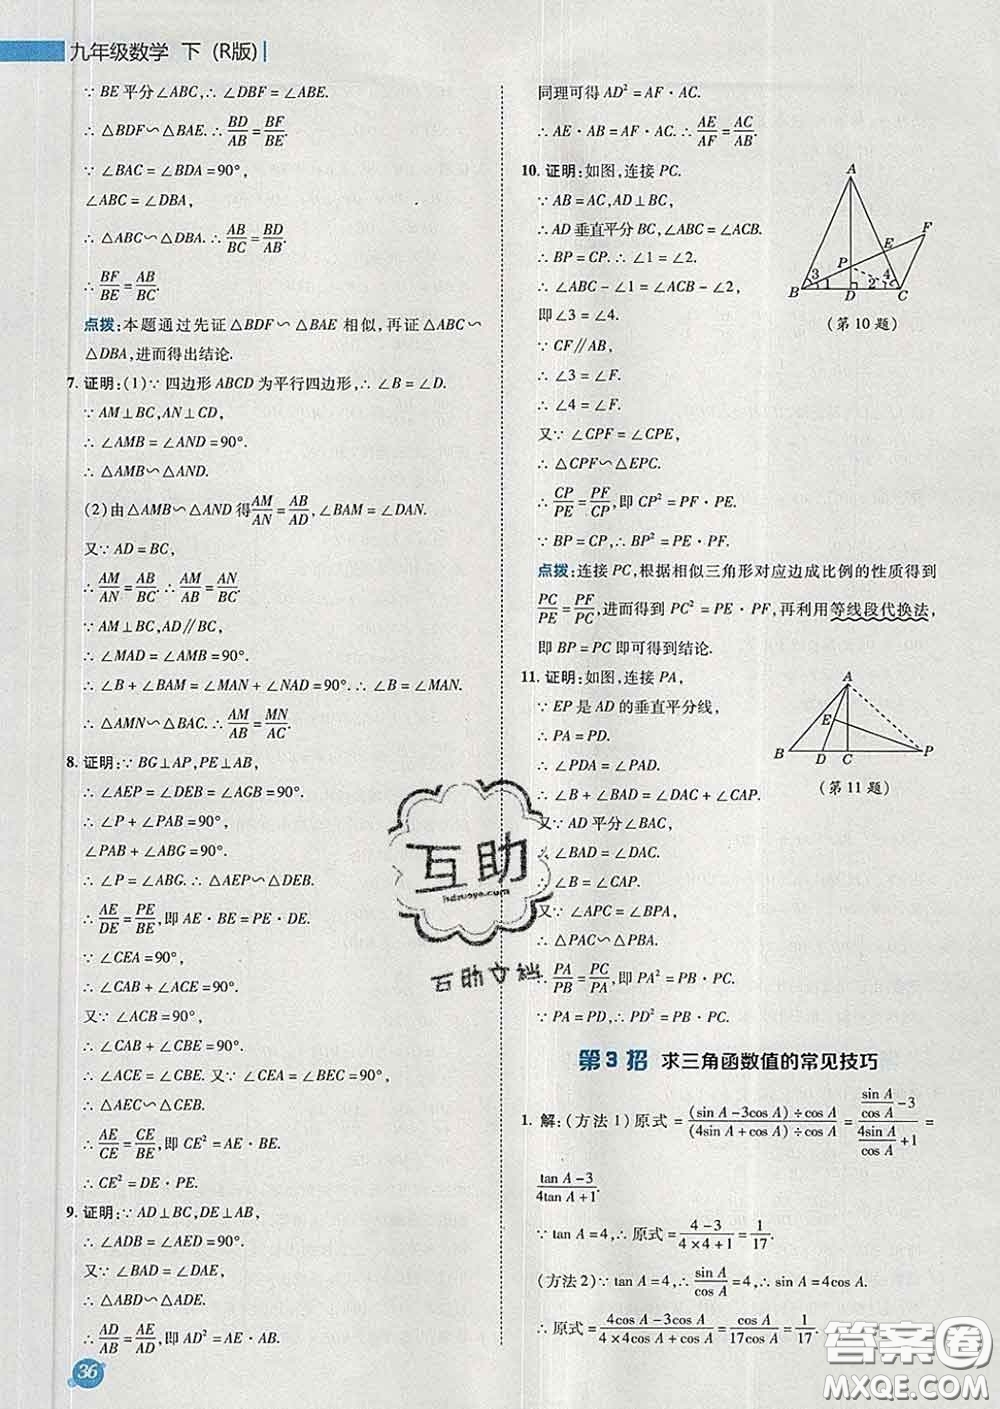 九年级数学 下 (R版)
∵ BE平分∠ABC,∴ ∠DBF=∠ABE.
∴ △BDF∽△BAE.∴ BD/AB=BF/BE.
∵ ∠BAC=∠BDA=90°,
∠ABC=∠DBA,
∴ △ABC∽△DBA.∴ AB/BC=BD/AB.
∴ BF/BE=AB/BC.
点拨:本题通过先证△BDF∽△BAE 相似,再证△ABC∽
△DBA,进而得出结论.
7. 证明:(1)∵ 四边形 ABCD 为平行四边形,∴ ∠B=∠D.
∵ AM⊥BC,AN⊥CD,
∴ ∠AMB=∠AND=90°.
∴ △AMB∽△AND.
(2)由△AMB∽△AND得AM/AN=AB/AD,∠BAM=∠DAN.
又∵ AD=BC,
∴ AM/AN=AB/BC.∴ AM/AB=AN/BC.
∵ AM⊥BC,AD∥BC,
∴ ∠MAD=∠AMB=90°.
∴ ∠B+∠BAM=∠MAN+∠NAD=90°.∴ ∠B=∠MAN.
∴ △AMN∽△BAC.∴ AM/AB=MN/AC.
8. 证明:∵ BG⊥AP,PE⊥AB,
∴ ∠AEP=∠DEB=∠AGB=90°.
∴ ∠P+∠PAB=90°,
∠PAB+∠ABG=90°.
∴ ∠P=∠ABG.∴ △AEP∽△DEB.
∴ AE/DE=PE/BE,即 AE·BE=PE·DE.
∵ ∠CEA=90°,
∴ ∠CAB+∠ACE=90°.
又∵ ∠ACB=90°,
∴ ∠CAB+∠CBE=90°.
∴ ∠ACE=∠CBE.又∵ ∠CEA=∠BEC=90°,
∴ △AEC∽△CEB.
∴ AE/CE=CE/BE,即 CE²=AE·BE.
∴ CE²=DE·PE.
9. 证明:∵ AD⊥BC,DE⊥AB,
∴ ∠ADB=∠AED=90°.
又∵ ∠BAD=∠DAE,
∴ △ABD∽△ADE.
∴ AD/AE=AB/AD,即 AD²=AE·AB.
36
同理可得 AD²=AF·AC.
∴ AE·AB=AF·AC.∴ AE/AF=AC/AB.
10. 证明:如图,连接 PC.
∵ AB=AC,AD⊥BC,
∴ AD 垂直平分 BC,∠ABC=∠ACB.
∴ BP=CP.∴ ∠1=∠2.
∴ ∠ABC-∠1=∠ACB-∠2,
即∠3=∠4.
∵ CF∥AB,
∴ ∠3=∠F.
∴ ∠4=∠F.
又∵ ∠CPF=∠CPE,
∴ △CPF∽△EPC.
∴ CP/PE=PF/CP,即 CP²=PF·PE.
∵ BP=CP,∴ BP²=PE·PF.
A
E
F
P
3
4
1
2
B
D
C
(第10题)
点拨:连接 PC,根据相似三角形对应边成比例的性质得到
PC/PE=PF/PC,进而得到 PC²=PE·PF,再利用等线段代换法,
即 BP=PC 即可得到结论.
11. 证明:如图,连接 PA,
∵ EP 是 AD 的垂直平分线,
∴ PA=PD.
∴ ∠PDA=∠PAD.
∴ ∠B+∠BAD=∠DAC+∠CAP.
又∵ AD 平分∠BAC,
∴ ∠BAD=∠DAC.
∴ ∠B=∠CAP.
又∵ ∠APC=∠BPA,
∴ △PAC∽△PBA.
∴ PA/PB=PC/PA,即 PA²=PB·PC.
∵ PA=PD,∴ PD²=PB·PC.
A
E
B
D
C
P
(第11题)
第3招 求三角函数值的常见技巧
1. 解:(方法1)原式=(sin A-3cos A)÷cos A/(4sin A+cos A)÷cos A=(sin A/cos A-3)/(4sin A/cos A+1)=
(tan A-3)/(4tan A+1).
∵ tan A=4,∴ 原式=(4-3)/(4×4+1)=1/17.
(方法2)∵ tan A=4,∴ sin A/cos A=4,∴ sin A=4cos A.
∴ 原式=(4cos A-3cos A)/(4×4cos A+cos A)=cos A/17cos A=1/17.
互助
hdzuoye.com
互助文档
答案圈
MXQE.COM